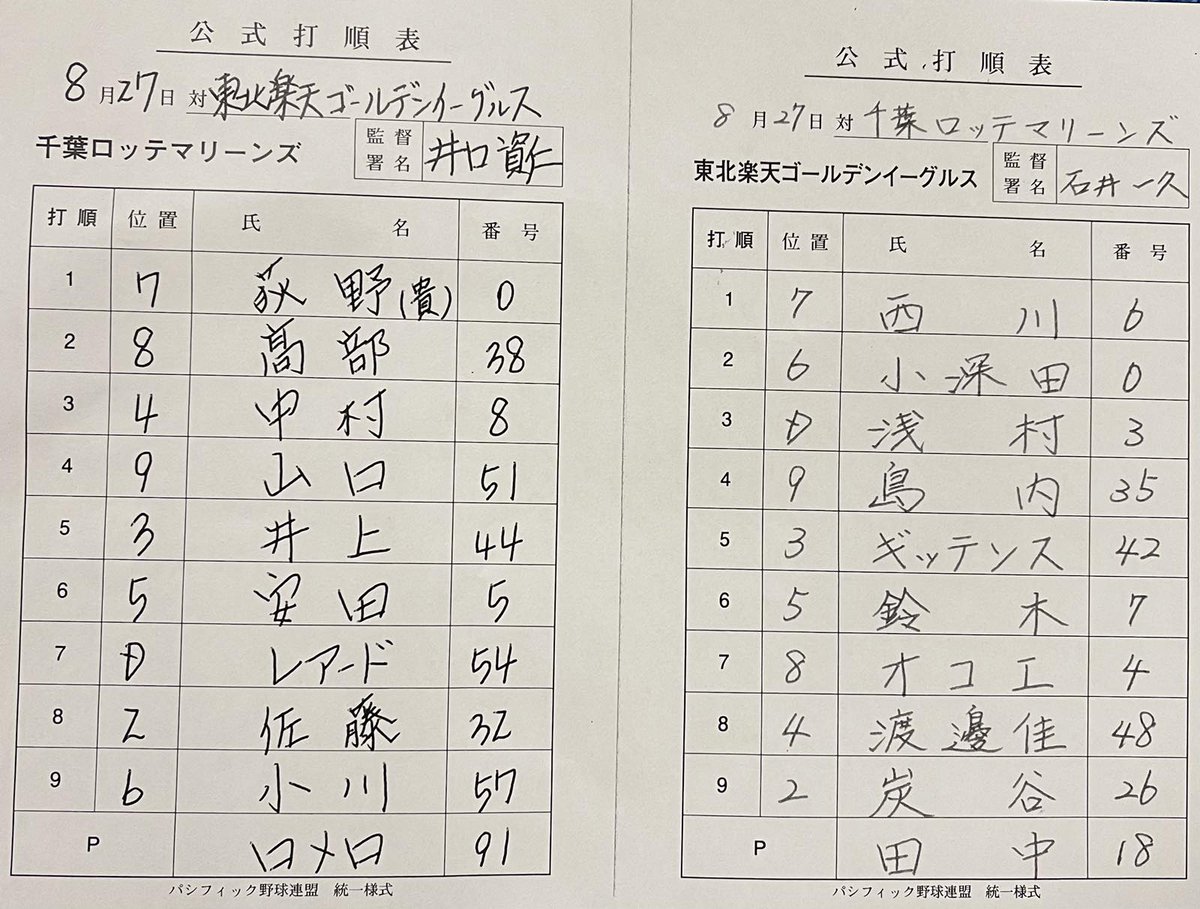 公式打順表
8月27日 対 東北楽天ゴールデンイーグルス
千葉ロッテマリーンズ 監督署名 井口資仁
打順 位置 氏名 番号
1 7 荻野(貴) 0
2 8 髙部 38
3 4 中村 8
4 9 山口 51
5 3 井上 44
6 5 安田 5
7 D レアード 54
8 2 佐藤 32
9 6 小川 57
P ロメロ 91
パシフィック野球連盟 統一様式
公式打順表
8月27日 対 千葉ロッテマリーンズ
東北楽天ゴールデンイーグルス 監督署名 石井一久
打順 位置 氏名 番号
1 7 西川 6
2 6 小深田 0
3 D 浅村 3
4 9 島内 35
5 3 ギッテンス 42
6 5 鈴木 7
7 8 オコエ 4
8 4 渡邊佳 48
9 2 炭谷 26
P 田中 18
パシフィック野球連盟 統一様式